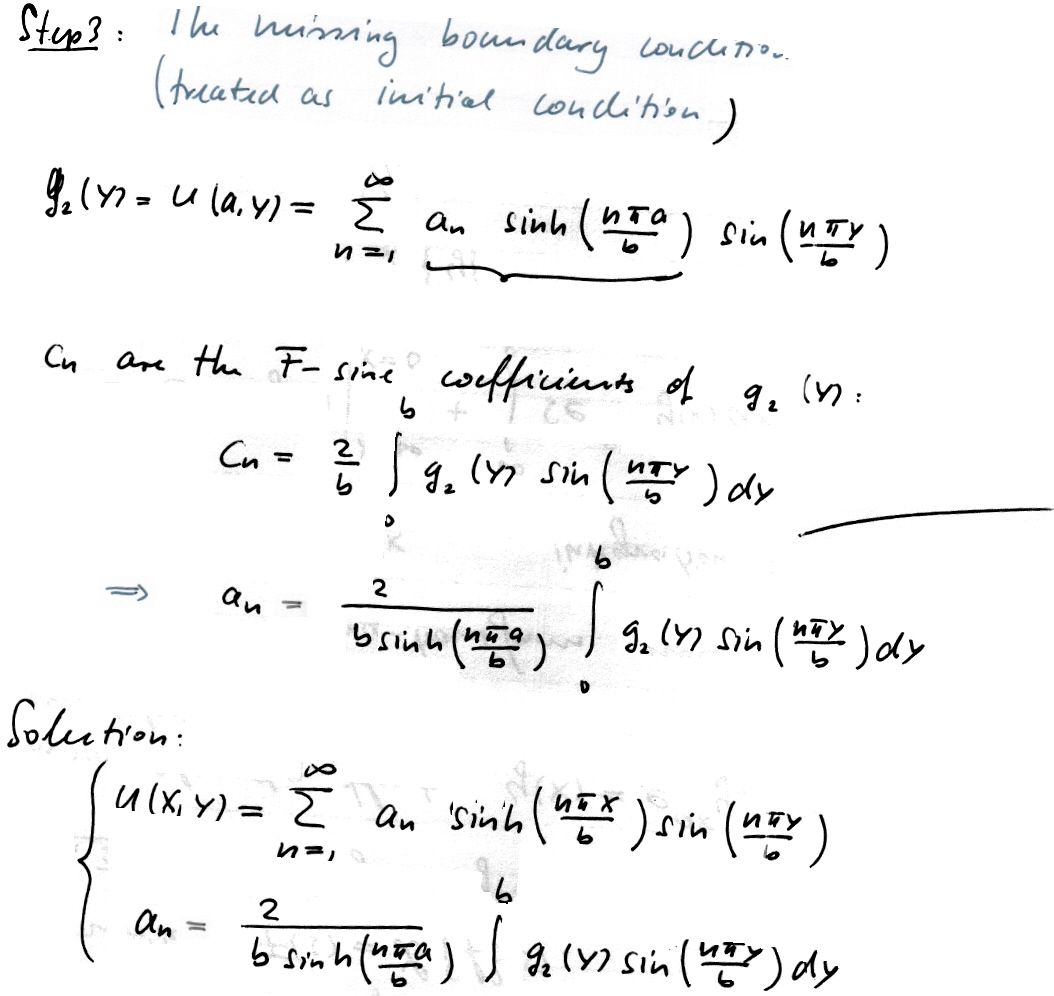 Step 3: The missing boundary condition.
(treated as initial condition)
g₂(y) = u(a,y) = ∑_{n=1}^{∞} aₙ sinh(nπa/b) sin(nπy/b)
Cn are the F-sine coefficients of g₂(y):
Cn = 2/b ∫₀ᵇ g₂(y) sin(nπy/b) dy
⇒ aₙ = 2/(b sinh(nπa/b)) ∫₀ᵇ g₂(y) sin(nπy/b) dy
Solution:
u(x,y) = ∑_{n=1}^{∞} aₙ sinh(nπx/b) sin(nπy/b)
aₙ = 2/(b sinh(nπa/b)) ∫₀ᵇ g₂(y) sin(nπy/b) dy